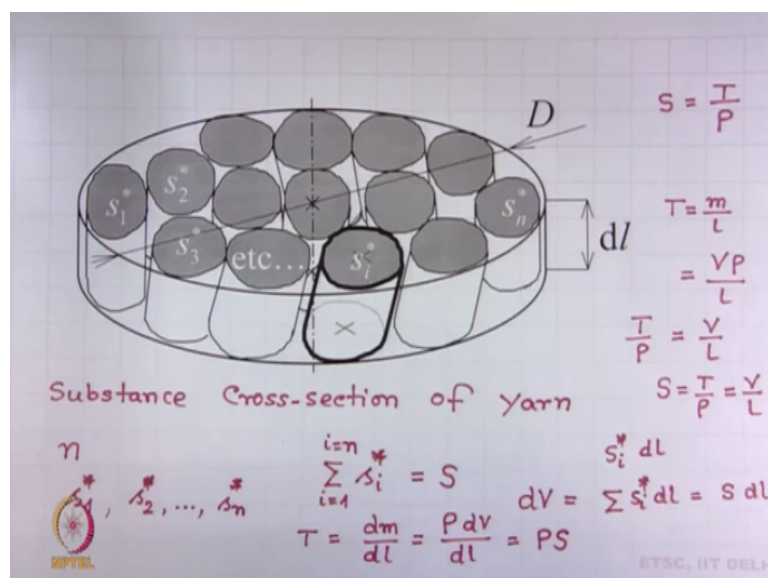 D
S = T/P
s₁* s₂* s₃* etc... sᵢ* sₙ*
dl
T = m/L
= VP/L
T/P = V/L
S = T/P = V/L
Substance Cross-section of yarn
n
s₁*, s₂*, ..., sₙ*
∑ᵢ₌₁ⁱ⁼ⁿ sᵢ* = S
sᵢ* dl
dV = ∑ sᵢ* dl = S dl
T = dm/dl = P dV/dl = PS
NPTEL
ETSC, IIT DELH